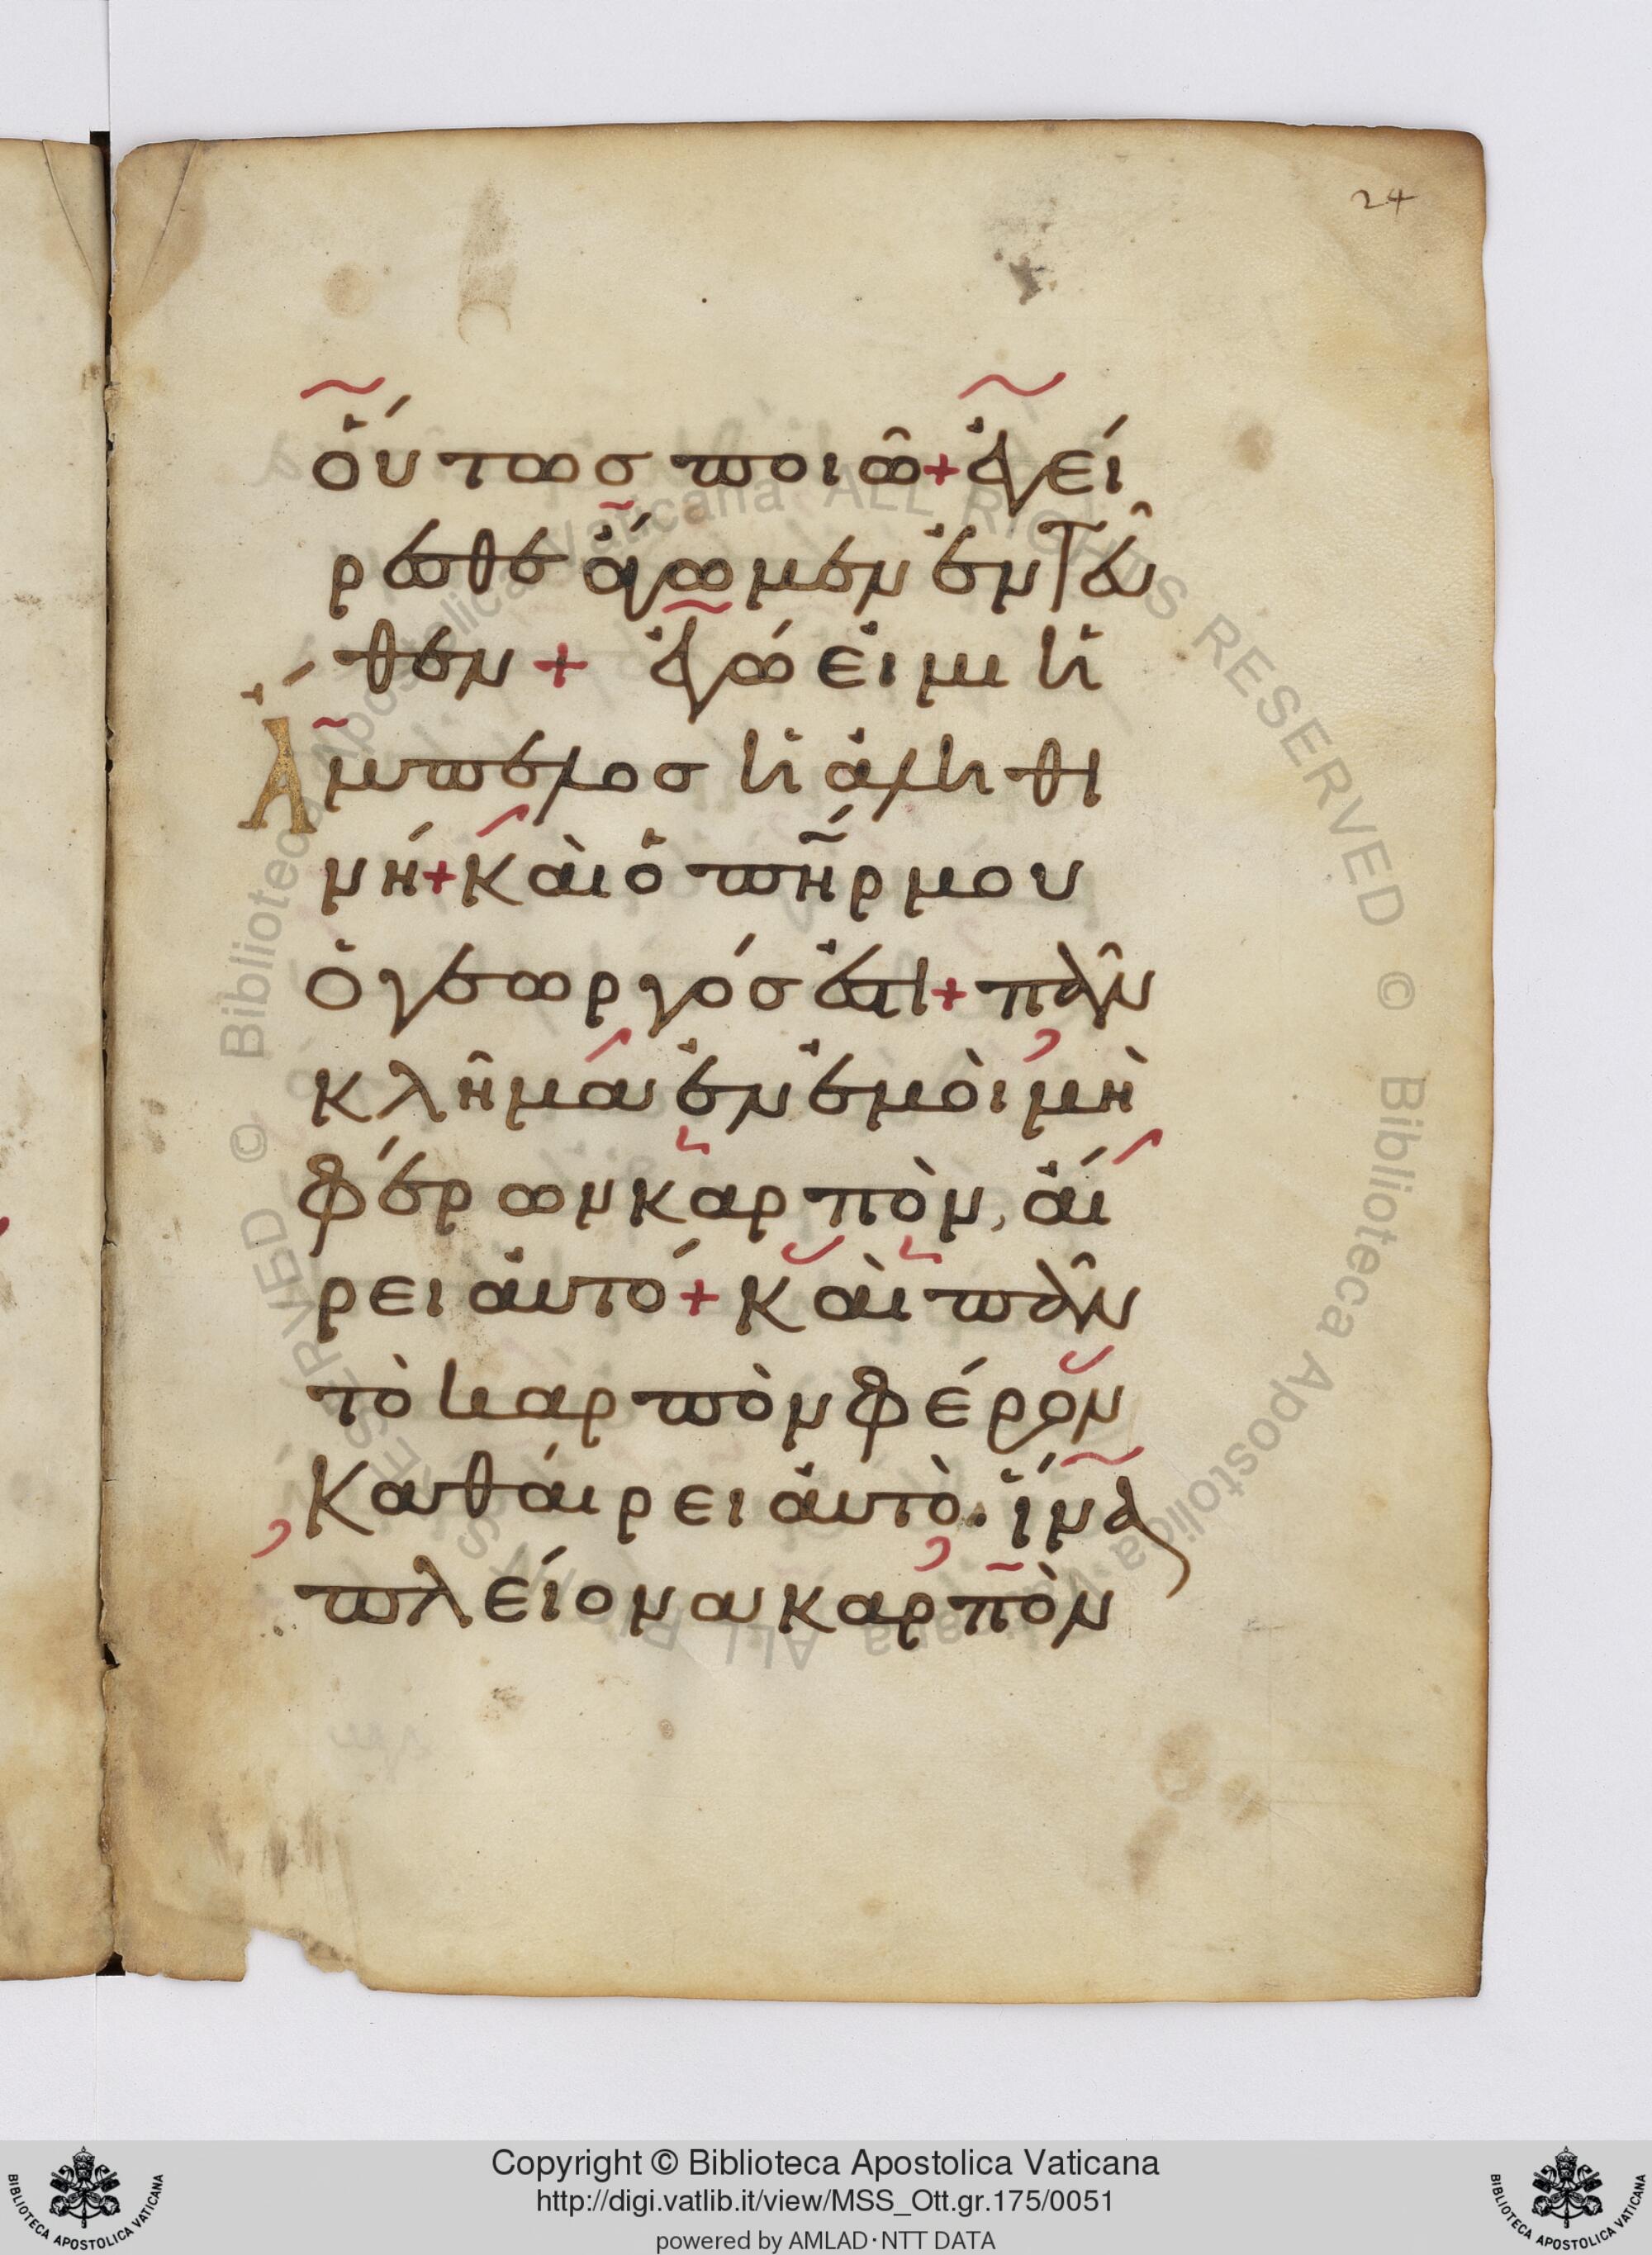 24
οὕτωσ ποιῶ + ἐγεί
ρεσθε ἄγωμεν ἐντεῦ
θεν + ἐγώ εἰμι ἡ
ἄμπελοσ ἡ ἀληθι
νή + καὶ ὁ πη̃́ρ μου
ὁ γεωργόσ ἐστι + πᾶν
κλῆμα ἐν ἐμοὶ μὴ
φέρων καρπὸν, αἴ
ρει ἀυτό + καὶ πᾶν
τὸ καρπὸν φέρον
καθάιρει ἀυτὸ. ἵνα
πλείονα καρπὸν
© Biblioteca Apostolica Vaticana ALL RIGHTS RESERVED © Biblioteca Apostolica Vaticana ALL RIGHTS RESERVED
Copyright © Biblioteca Apostolica Vaticana
http://digi.vatlib.it/view/MSS_Ott.gr.175/0051
powered by AMLAD·NTT DATA
BIBLIOTECA APOSTOLICA VATICANA
BIBLIOTECA APOSTOLICA VATICANA